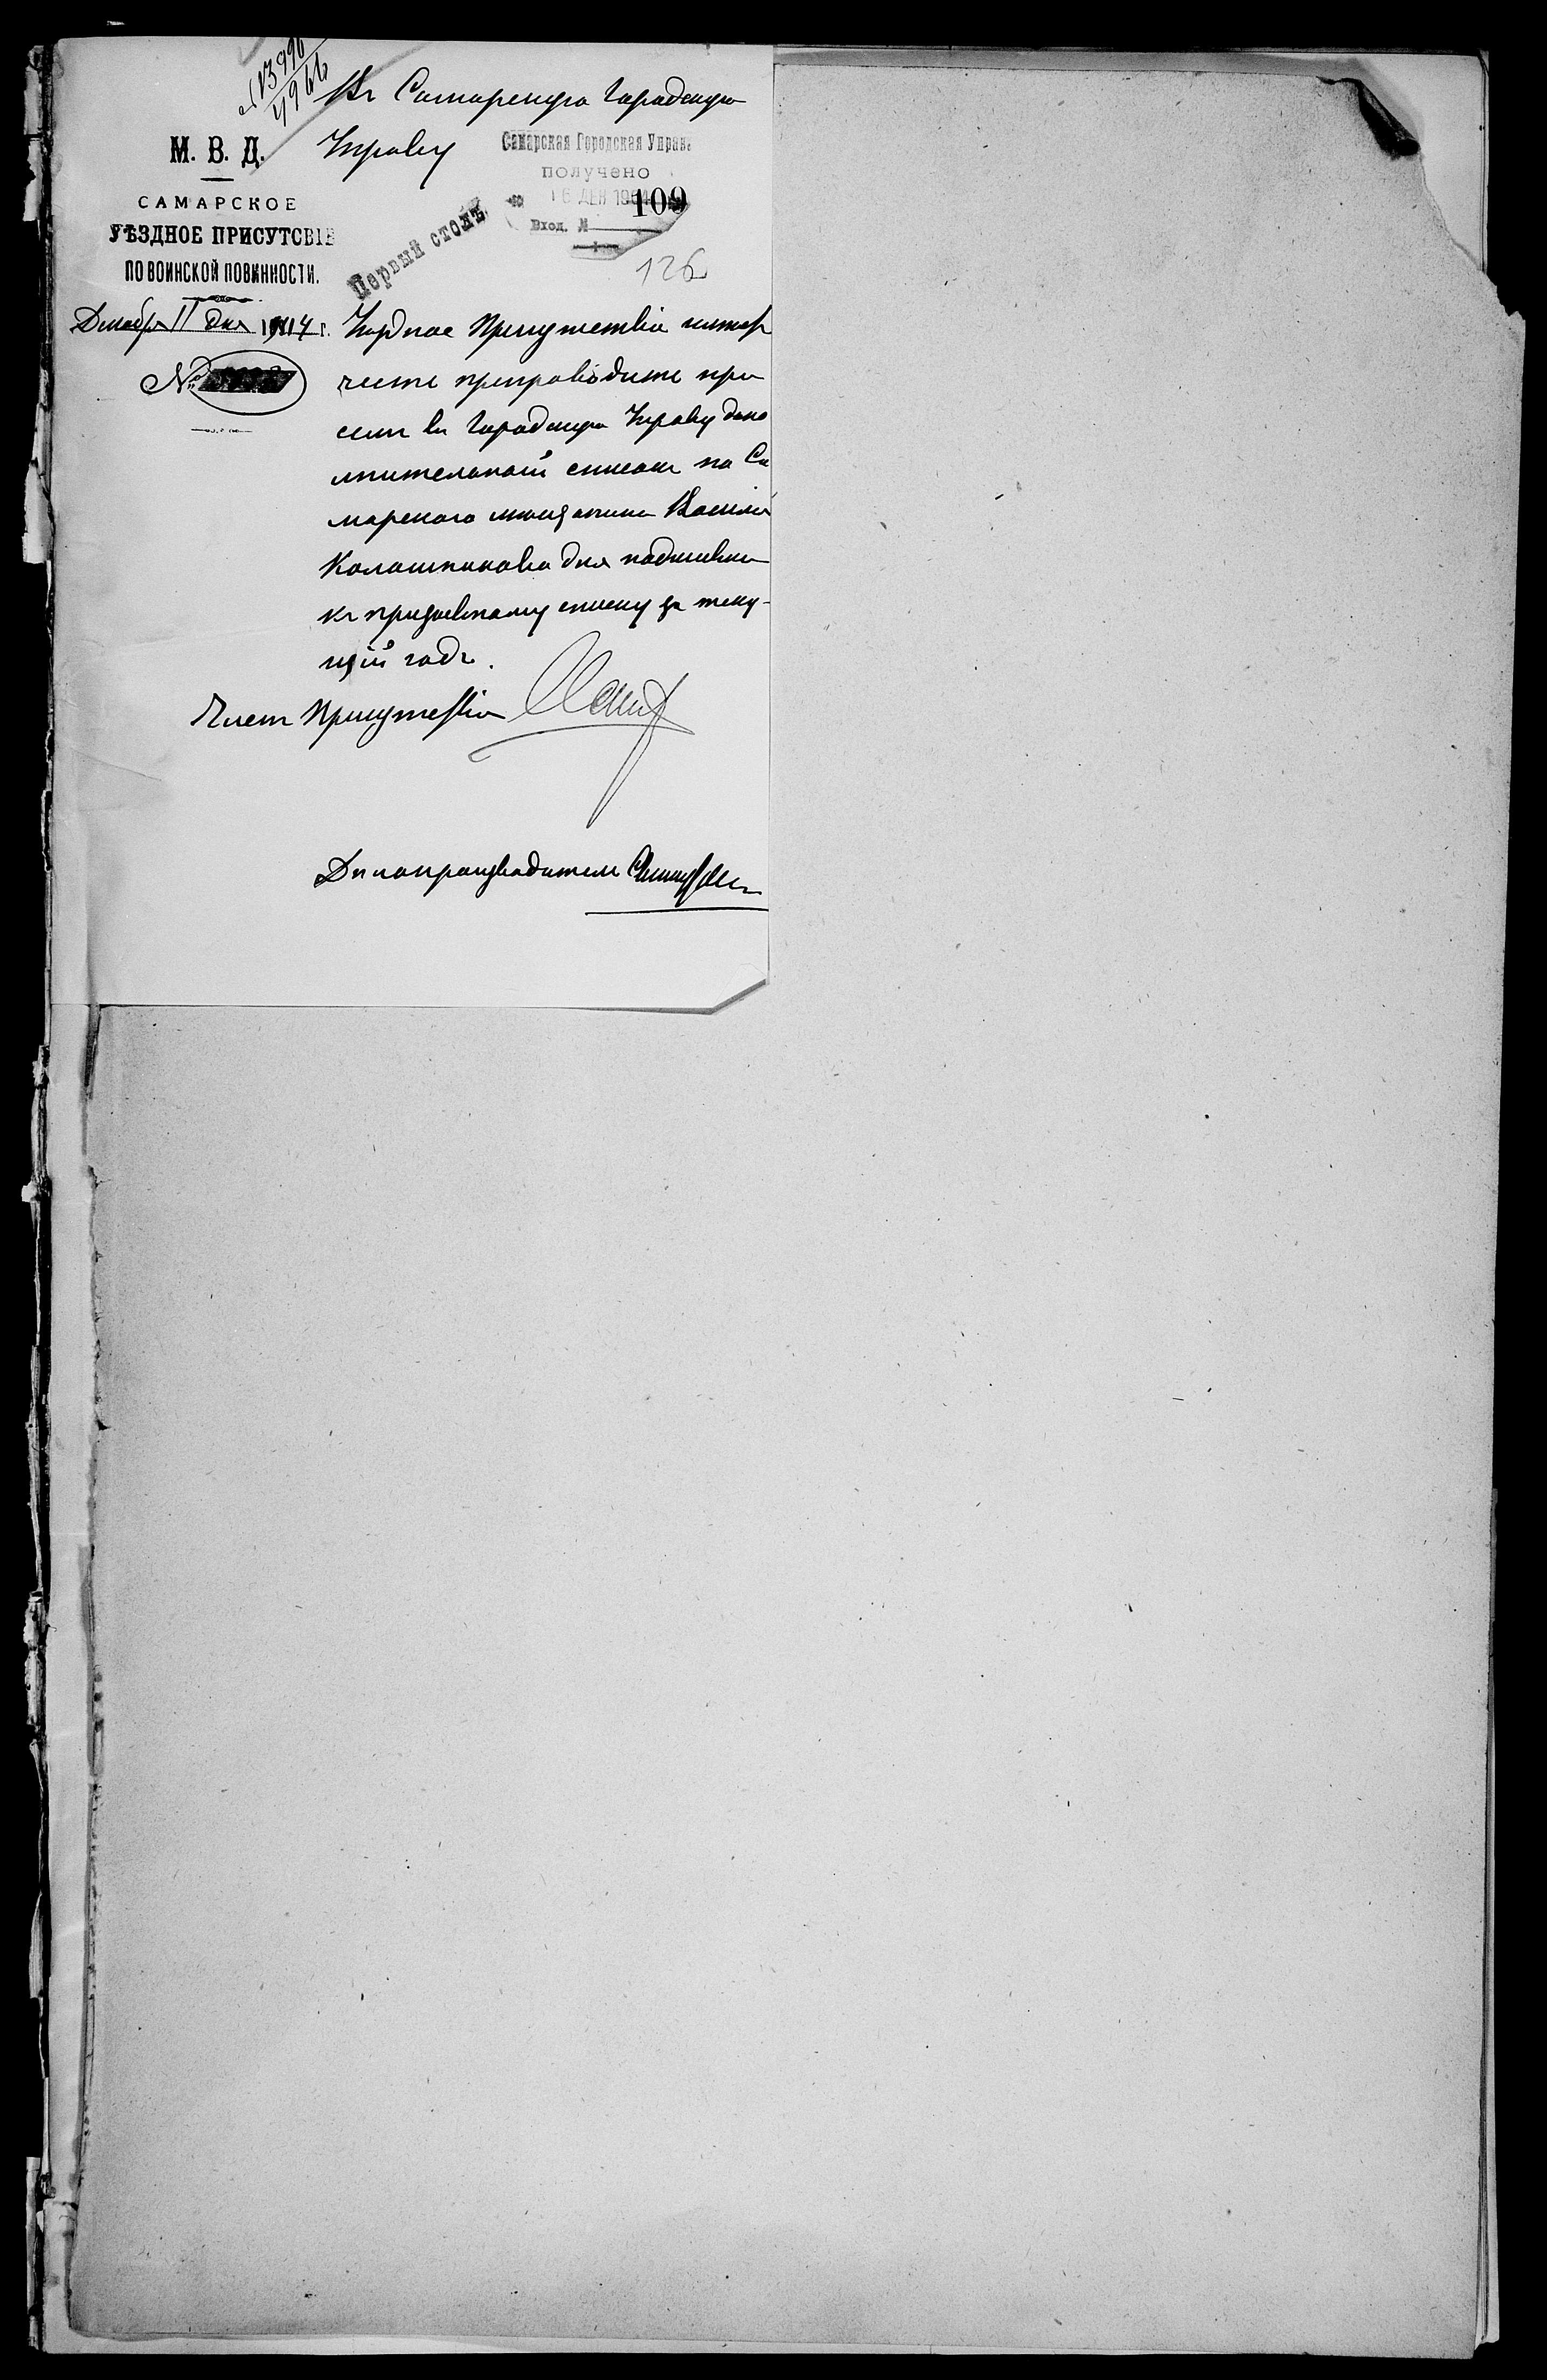 № 13990
4966
Въ Самарскую Городскую
Управу
М. В. Д.
САМАРСКОЕ
УѢЗДНОЕ ПРИСУТСВІЕ
ПО ВОИНСКОЙ ПОВИННОСТИ.
Самарская Городская Управа
получено
16 ДЕК 1904
109
Вход. №
Первый столъ
126
Декабря 11 дня 1904 г.
№
Уѣздное Присутствіе имѣетъ
честь препроводить при
семъ въ Городскую Управу допо
лнительный списокъ на Са
марскаго мѣщанина Василія
Колашникова для подшивки
къ призывному списку за теку-
щій годъ.
Членъ Присутствія
Дѣлопроизводитель